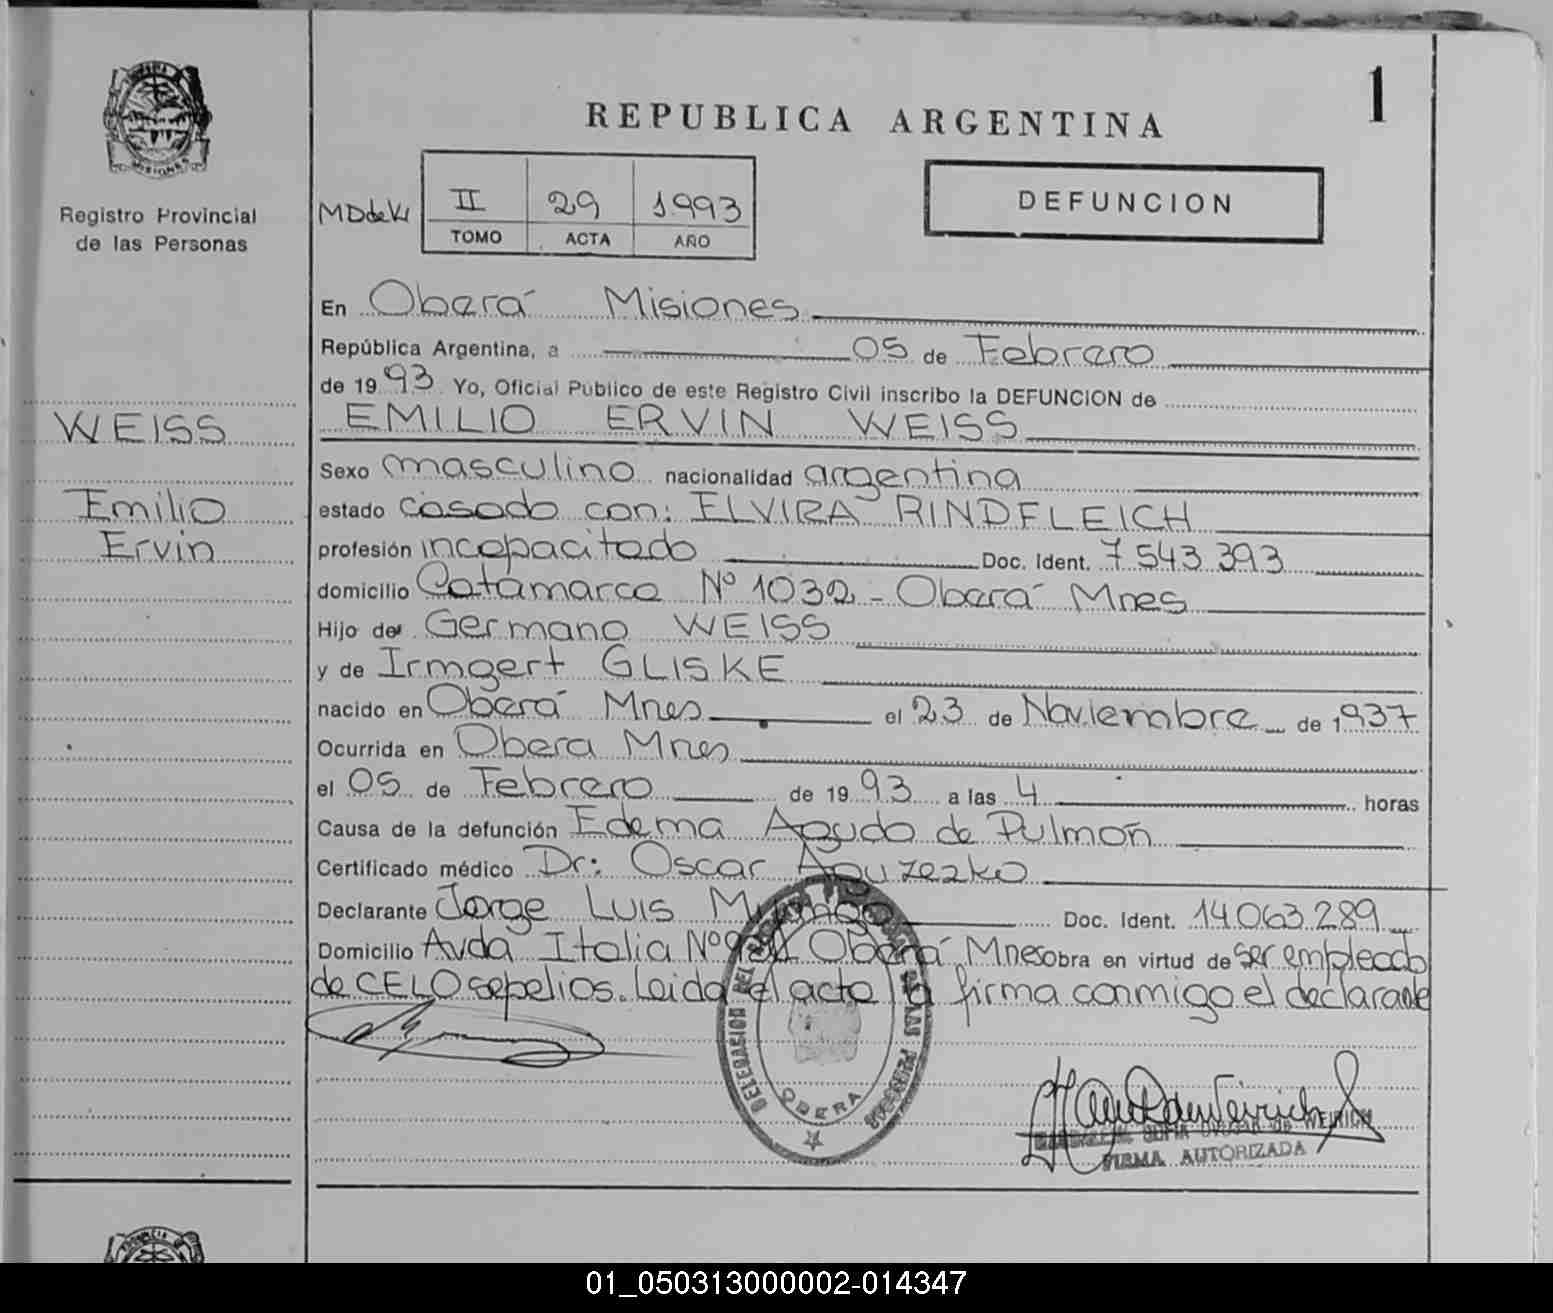 1
REPUBLICA ARGENTINA
PROVINCIA DE
MISIONES
Registro Provincial
de las Personas
II 29 1993
TOMO ACTA AÑO
DEFUNCION
En Oberá Misiones
República Argentina, a 05 de Febrero
de 1993 Yo, Oficial Público de este Registro Civil inscribo la DEFUNCION de
WEISS
EMILIO ERVIN WEISS
Sexo masculino nacionalidad argentina
Emilio
estado casado con: ELVIRA RINDFLEICH
Ervin
profesión incapacitado Doc. Ident. 7.543.393
domicilio Catamarca Nº 1032 - Oberá Mnes
Hijo de Germano WEISS
y de Irmgert GLISKE
nacido en Oberá Mnes el 23 de Noviembre de 1937
Ocurrida en Obera Mnes
el 05 de Febrero de 1993 a las 4 horas
Causa de la defunción Edema Agudo de Pulmón
Certificado médico Dr: Oscar
Declarante Jorge Luis Doc. Ident. 14.063.289
Domicilio Avda Italia Nº Oberá Mnes obra en virtud de ser empleado
de CELO sepelios. Leida el acta la firma conmigo el declarante
DELEGACION DEL REGISTRO DE LAS PERSONAS
OBERA
DE WEIRICH
FIRMA AUTORIZADA
01_050313000002-014347